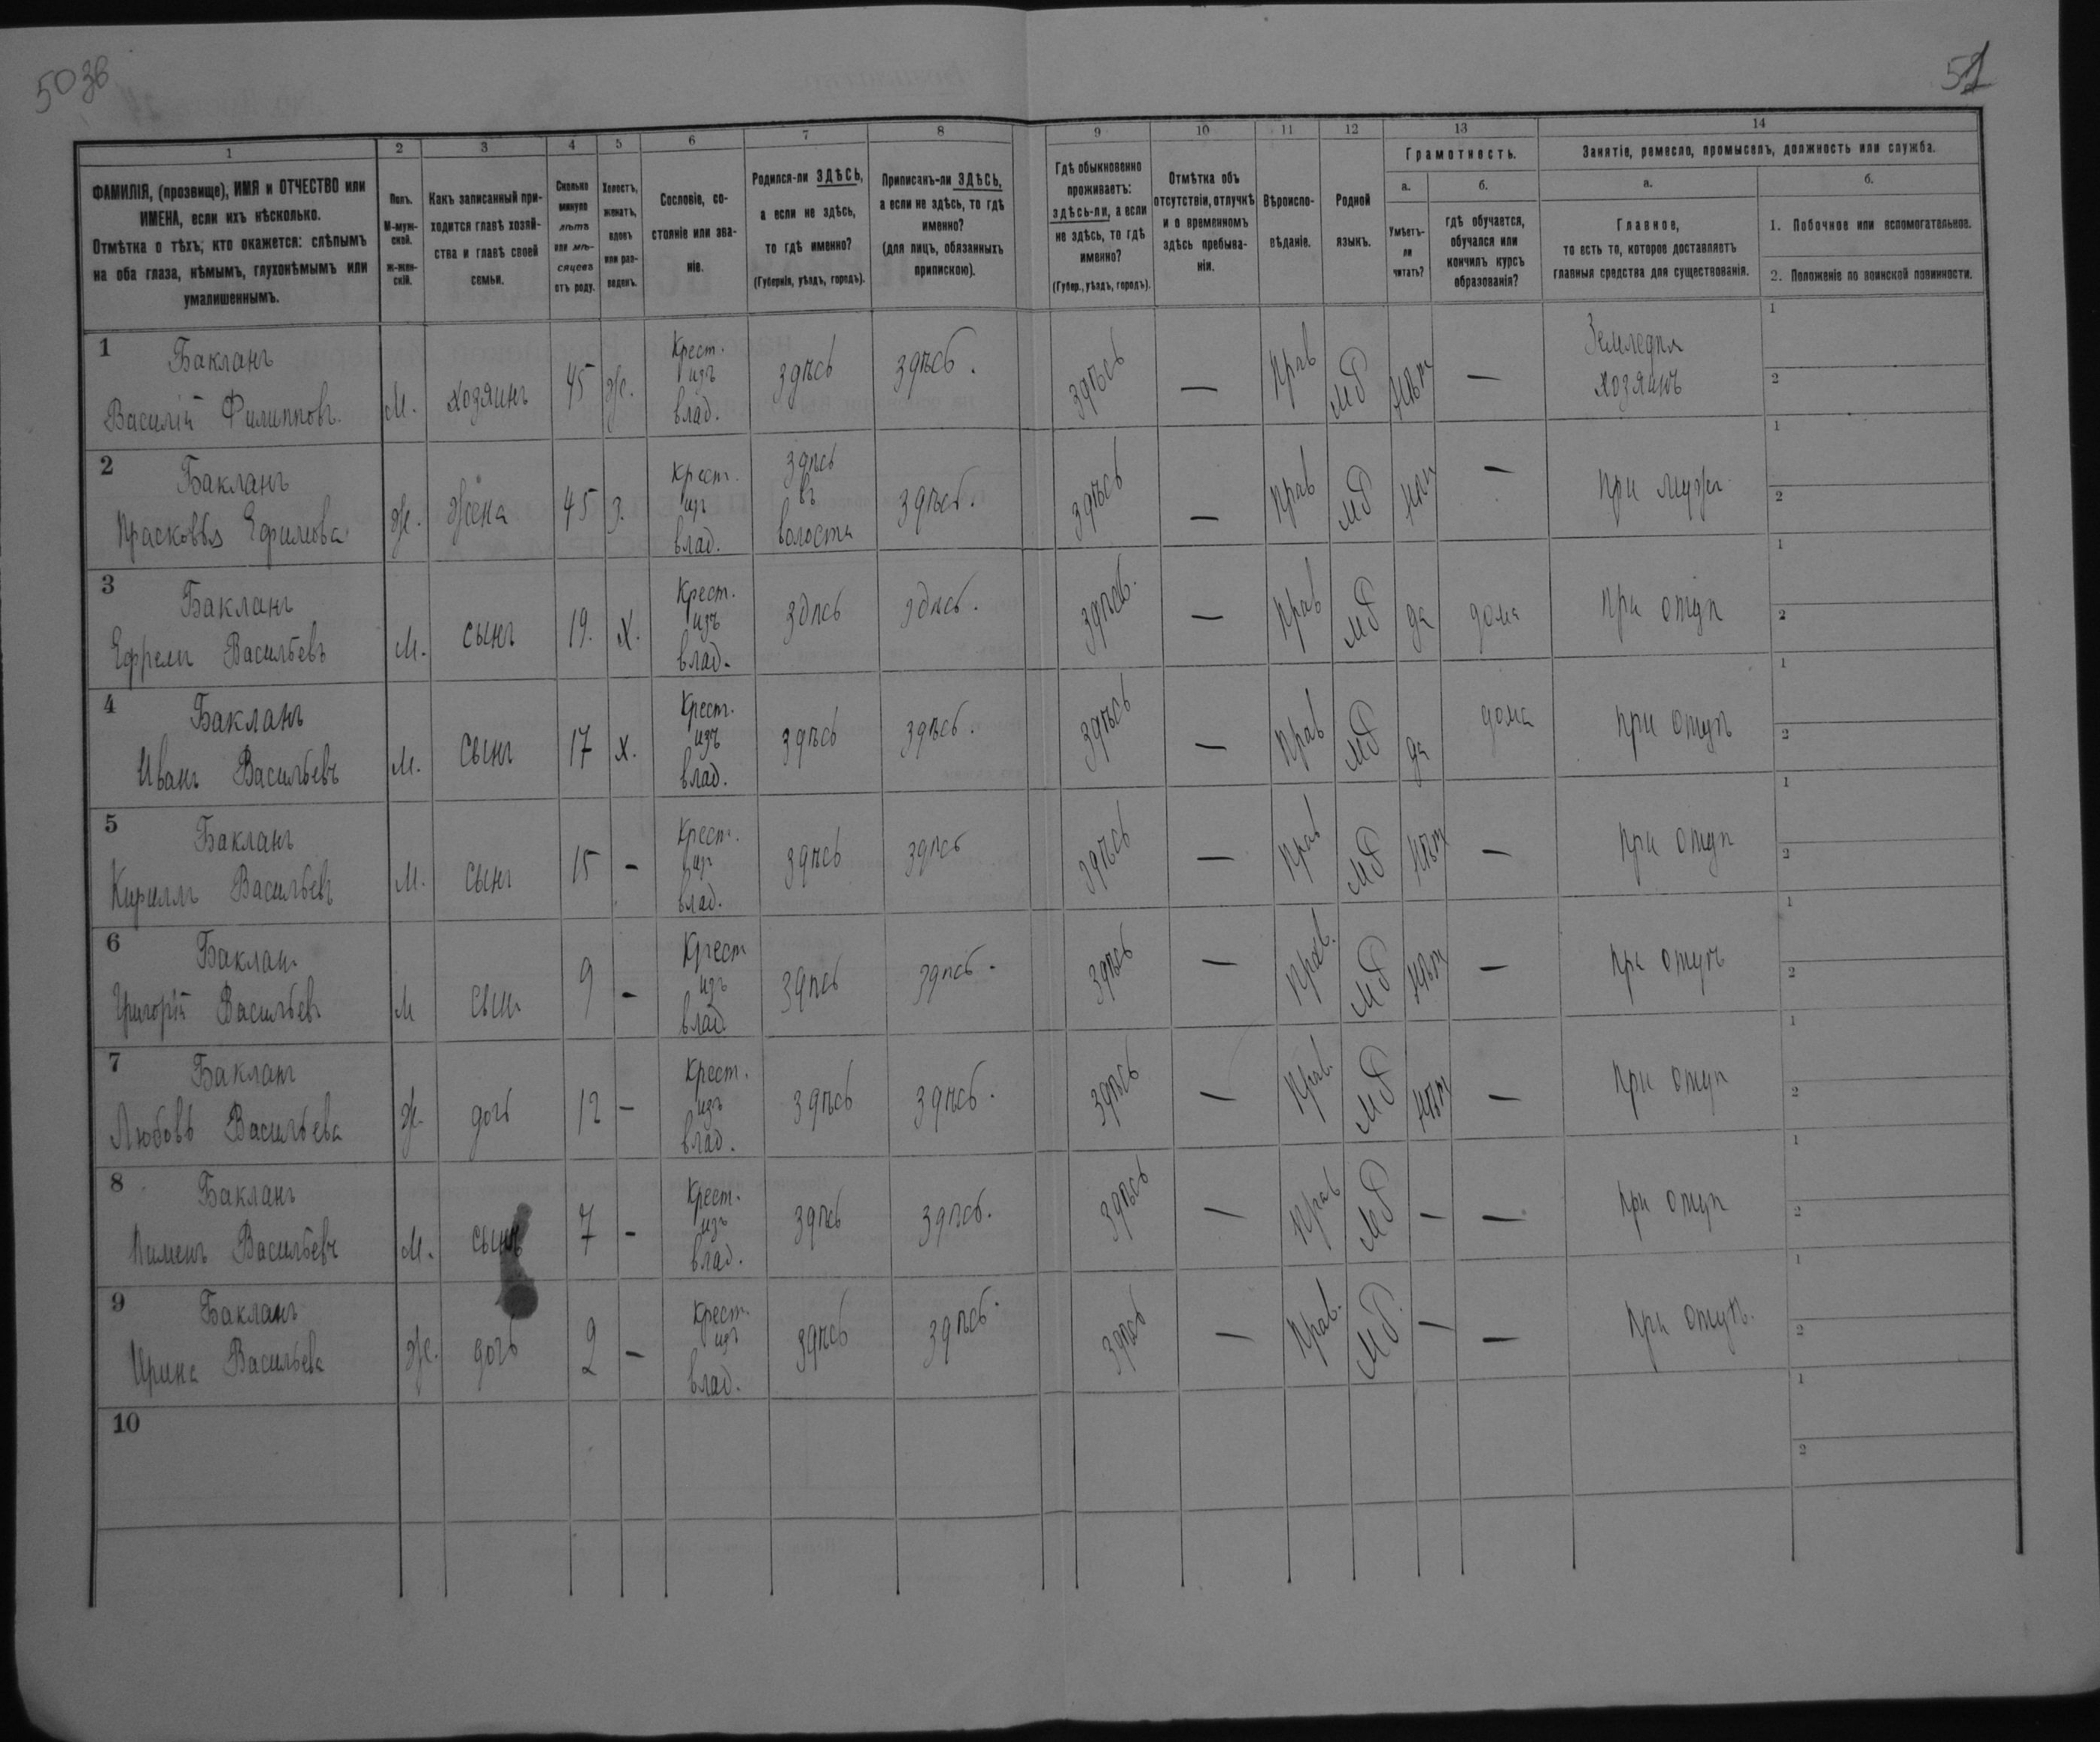 50зв
51
1
2
3
4
5
6
7
8
9
10
11
12
13
14
ФАМИЛІЯ, (прозвище), ИМЯ и ОТЧЕСТВО или
ИМЕНА, если ихъ нѣсколько.
Отмѣтка о тѣхъ; кто окажется: слѣпымъ
на оба глаза, нѣмымъ, глухонѣмымъ или
умалишеннымъ.
Полъ.
М-муж-
ской.
Ж-жен-
скій.
Какъ записанный при-
ходится главѣ хозяй-
ства и главѣ своей
семьи.
Сколько
минуло
лѣтъ
или мѣ-
сяцевъ
отъ роду.
Холостъ,
женатъ,
вдовъ
или раз-
веденъ.
Сословіе, со-
стояніе или зва-
ніе.
Родился-ли ЗДѢСЬ,
а если не здѣсь,
то гдѣ именно?
(Губернія, уѣздъ, городъ).
Приписанъ-ли ЗДѢСЬ,
а если не здѣсь, то гдѣ
именно?
(для лицъ, обязанныхъ
припискою).
Гдѣ обыкновенно
проживаетъ:
здѣсь-ли, а если
не здѣсь, то гдѣ
именно?
(Губер., уѣздъ, городъ).
Отмѣтка объ
отсутствіи, отлучкѣ
и о временномъ
здѣсь пребыва-
ніи.
Вѣроиспо-
вѣданіе.
Родной
языкъ.
Грамотность.
а.
б.
Умѣетъ-
ли
читать?
гдѣ обучается,
обучался или
кончилъ курсъ
образованія?
Занятіе, ремесло, промыселъ, должность или служба.
а.
б.
Главное,
то есть то, которое доставляетъ
главныя средства для существованія.
1. Побочное или вспомогательное.
2. Положеніе по воинской повинности.
1
Бакланъ
Василій Филипповъ.
М.
хозяинъ
45
Ж.
Крест.
изъ
влад.
здѣсь
здѣсь.
здѣсь
—
Прав
Мб
нѣт
—
Земледѣл
хозяинъ
1
2
2
Бакланъ
Прасковья Ефимова
Ж.
Жена
45
З.
Крест.
изъ
влад.
здѣсь
въ
волости
здѣсь.
здѣсь
—
Прав
Мб
нѣт
—
При мужѣ
1
2
3
Бакланъ
Ефрем Васильевъ
М.
сынъ
19.
Х.
Крест.
изъ
влад.
здѣсь
здѣсь.
здѣсь.
—
Прав
Мб
да
дома
При отцѣ
1
2
4
Бакланъ
Иванъ Васильевъ
М.
Сынъ
17
Х.
Крест.
изъ
влад.
здѣсь
здѣсь.
здѣсь
—
Прав
Мб
да
дома
При отцѣ
1
2
5
Бакланъ
Кириллъ Васильевъ
М.
Сынъ
15
—
Крест.
изъ
влад.
здѣсь
здѣсь
здѣсь
—
Прав
Мб
нѣт
—
При отцѣ
1
2
6
Бакланъ
Григорій Васильевъ
М
сынъ
9
—
Крест
изъ
влад
здѣсь
здѣсь.
здѣсь
—
Прав.
Мб
нѣт
—
При отцѣ
1
2
7
Бакланъ
Любовь Васильева
Ж.
дочь
12
—
Крест.
изъ
влад.
здѣсь
здѣсь.
здѣсь
—
Прав.
Мб
нѣт
—
При отцѣ
1
2
8
Бакланъ
Пименъ Васильевъ
М.
сынъ
7
—
Крест.
изъ
влад.
здѣсь
здѣсь.
здѣсь
—
Прав
Мб
—
—
При отцѣ
1
2
9
Бакланъ
Ирина Васильева
Ж.
дочь
2
—
Крест.
изъ
влад.
здѣсь
здѣсь.
здѣсь
—
Прав.
Мб.
—
—
При отцѣ.
1
2
10
1
2